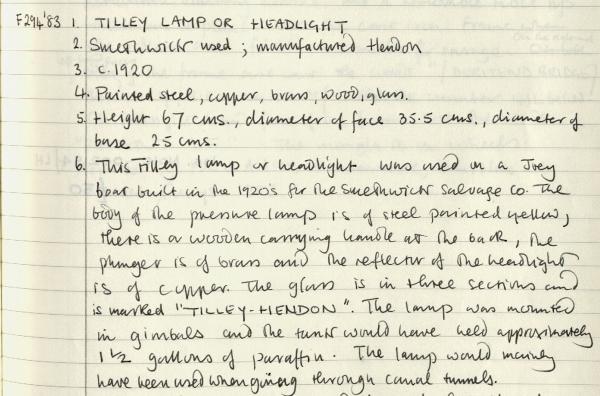 F294'83 1. TILLEY LAMP OR HEADLIGHT
2. Smethwick used; manufactured Hendon
3. c.1920
4. Painted steel, copper, brass, wood, glass.
5. Height 67 cms., diameter of face 35.5 cms., diameter of
base 25 cms.
6. This Tilley lamp or headlight was used on a Joey
boat built in the 1920's for the Smethwick Salvage Co. The
body of the pressure lamp is of steel painted yellow,
there is a wooden carrying handle at the back, the
plunger is of brass and the reflector of the headlight
is of copper. The glass is in three sections and
is marked "TILLEY-HENDON". The lamp was mounted
in gimbals and the tank would have held approximately
1 1/2 gallons of paraffin. The lamp would mainly
have been used when going through canal tunnels.